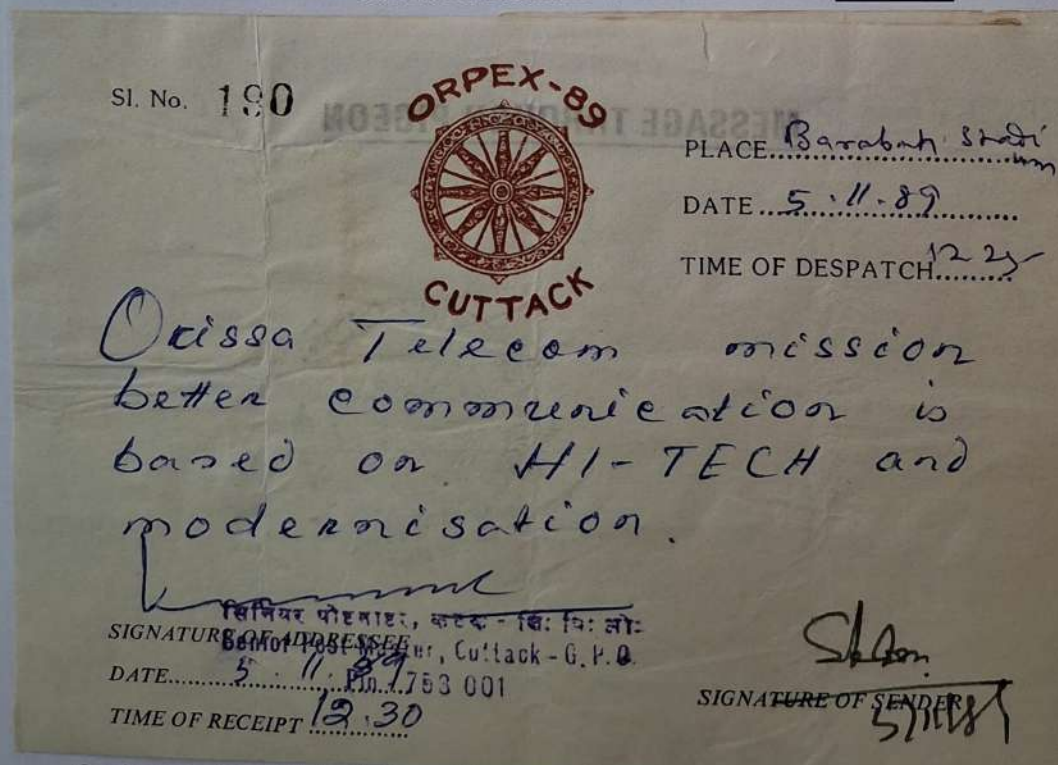 Sl. No. 190
ORPEX-89
CUTTACK
MESSAGE THROUGH PIGEON
PLACE Barabati Stadium
DATE 5.11.89
TIME OF DESPATCH 12 25
Orissa Telecom mission
better communication is
based on HI-TECH and
modernisation.
सिनियर पोष्टमाष्टर, कटक - जि: पि: ओ:
Senior Post Master, Cuttack - G.P.O.
Pin. 753 001
SIGNATURE OF ADDRESSEE
DATE 5.11.89
TIME OF RECEIPT 12.30
SIGNATURE OF SENDER
5/11/89